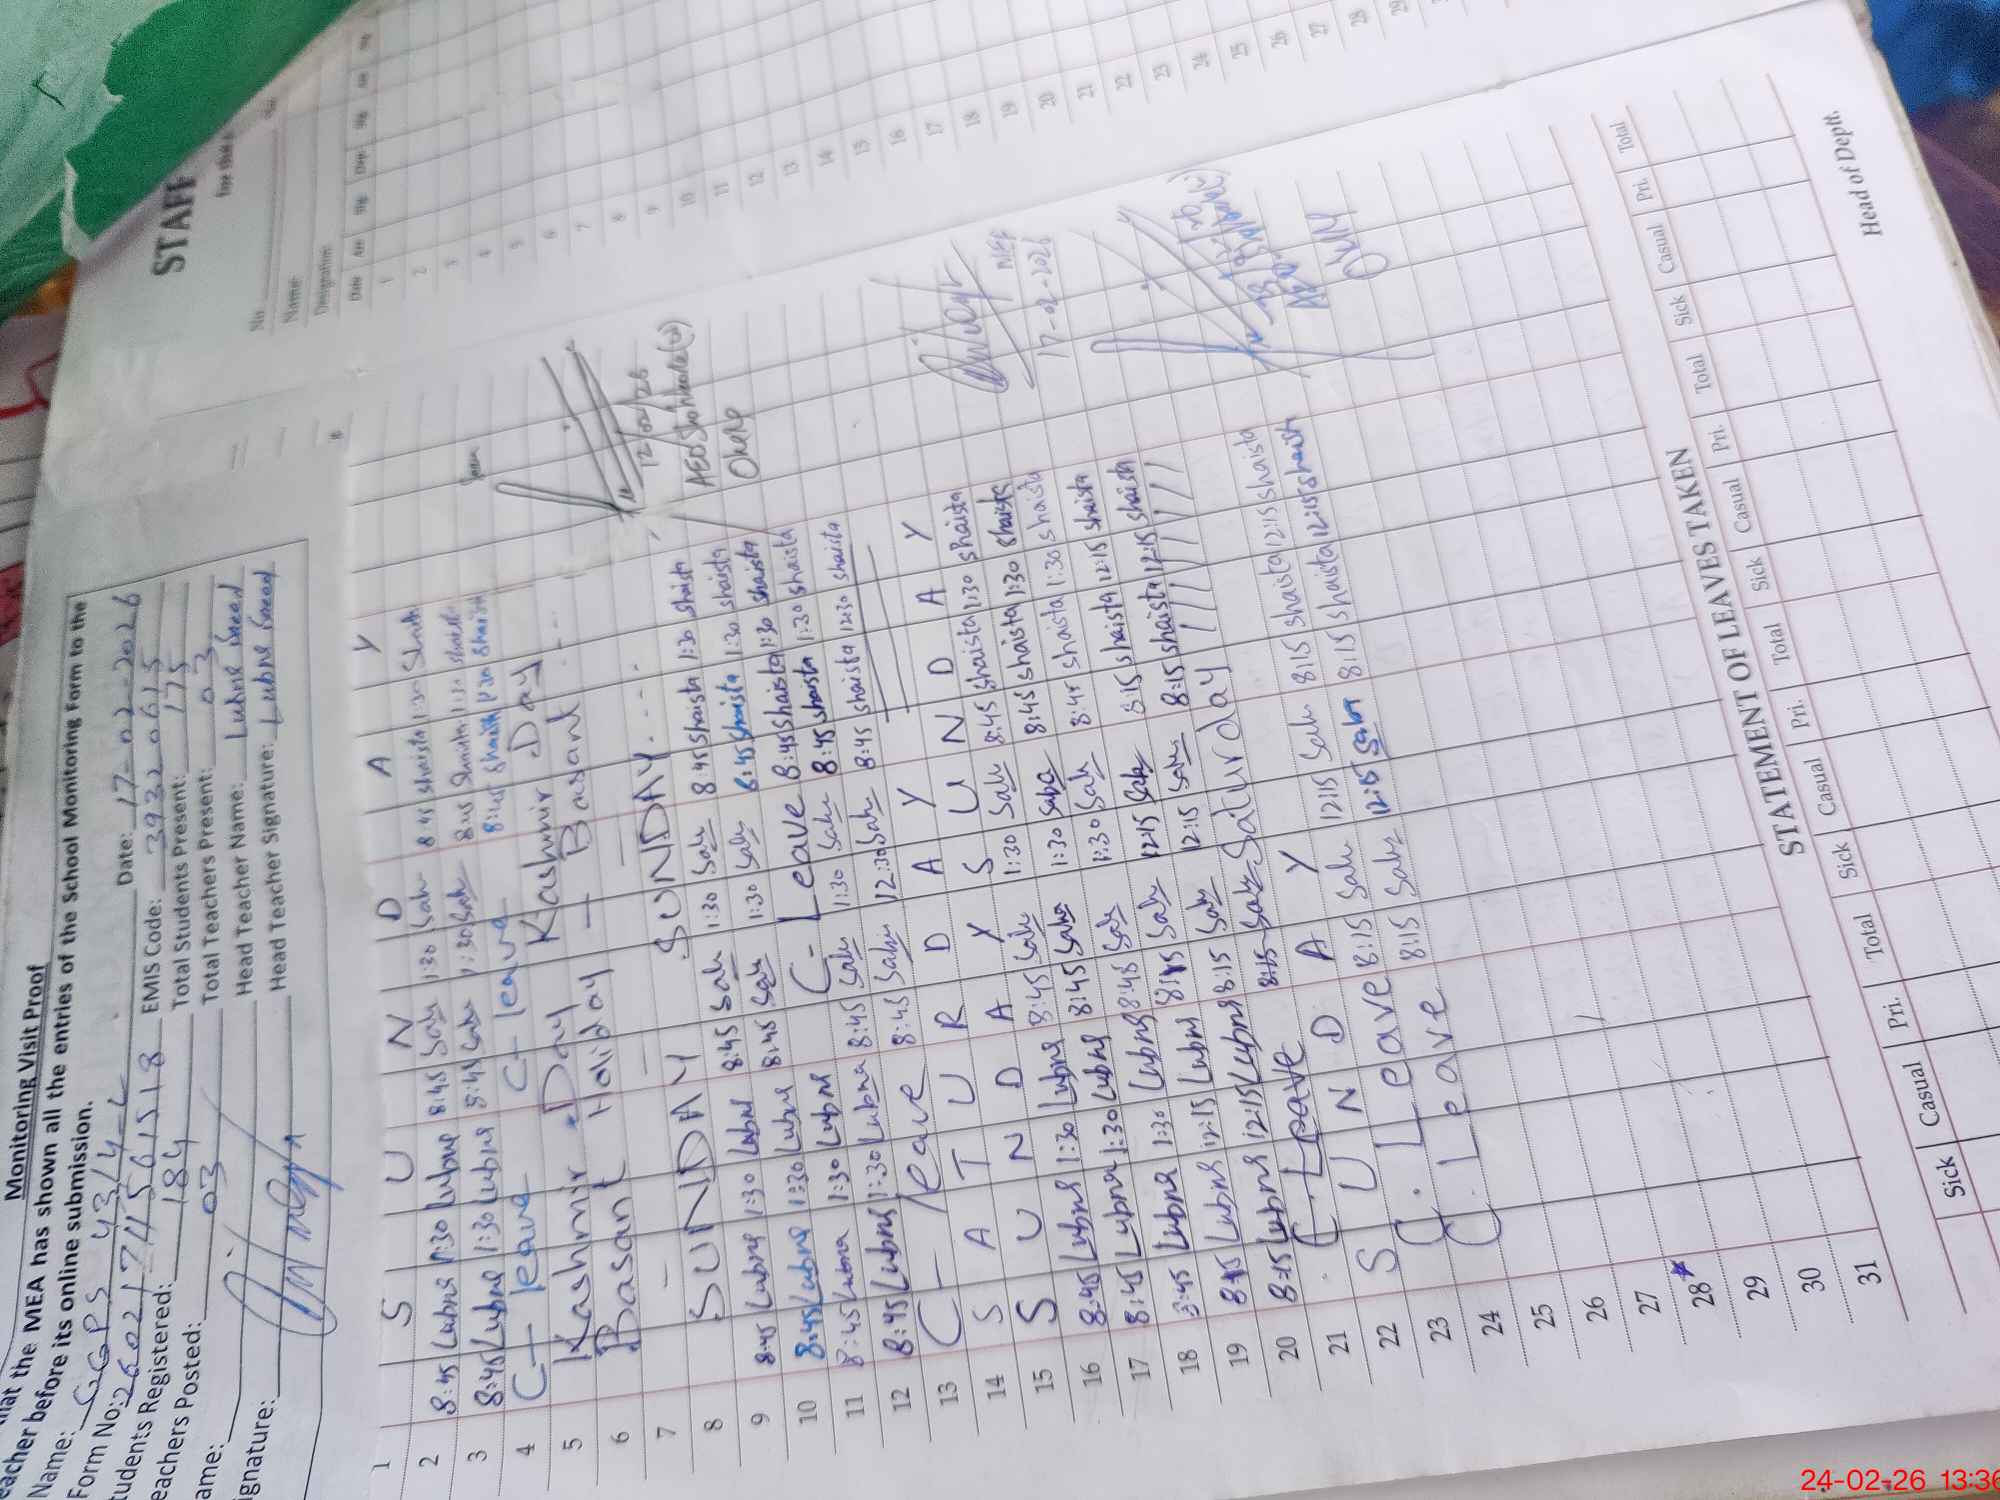 Monitoring Visit Proof
hat the MEA has shown all the entries of the School Monitoring Form to the
eacher before its online submission.
Name: GGPS 43/4-L Date: 17-02-2026
Form No: EMIS Code: 39320615
tudents Registered: 184 Total Students Present: 175
eachers Posted: 03 Total Teachers Present: 03
ame: Head Teacher Name: Lubna Saeed
ignature: Head Teacher Signature: Lubna Saeed
1 S U N D A Y
2 8:45 Lubna 1:30 Lubna 8:45 Saba 1:30 Saba 8:45 shaista 1:30
3 8:45 Lubna 1:30 Lubna 8:45 Saba 1:30 Saba 8:45 1:30
4 C- leave C- leave 8:45
5 Kashmir Day Kashmir Day
6 Basant Holiday - Basant
7 - SUNDAY - SUNDAY
8
9 8:45 Lubna 1:30 Lubna 8:45 Saba 1:30 Saba 8:45 shaista 1:30 shaista
10 8:45 Lubna 1:30 Lubna 8:45 Saba 1:30 Saba 8:45 shaista 1:30 shaista
11 8:45 Lubna 1:30 Lubna C- Leave 8:45 shaista 1:30 shaista
12 8:45 Lubna 1:30 Lubna 8:45 Saba 1:30 Saba 8:45 shaista 1:30 shaista
13 C- leave 8:45 Saba 12:30 Saba 8:45 shaista 12:30 shaista
14 S A T U R D A Y
15 S U N D A Y S U N D A Y
16 8:45 Lubna 1:30 Lubna 8:45 Saba 1:30 Saba 8:45 shaista 1:30 shaista
17 8:45 Lubna 1:30 Lubna 8:45 Saba 1:30 Saba 8:45 shaista 1:30 shaista
18 8:45 Lubna 1:30 Lubna 8:45 Saba 1:30 Saba 8:45 shaista 1:30 shaista
19 8:15 Lubna 12:15 Lubna 8:15 Saba 12:15 Saba 8:15 shaista 12:15 shaista
20 8:15 Lubna 12:15 Lubna 8:15 Saba 12:15 Saba 8:15 shaista 12:15 shaista
21 C. Leave 8:15 Saba Saturday
22 S U N D A Y
23 C. Leave 8:15 Saba 12:15 Saba 8:15 shaista 12:15 shaista
24 C. Leave 8:15 Saba 12:15 Saba 8:15 shaista 12:15 shaista
25
26
27
28
29
30
31
12/02/26
17-02-2026
STATEMENT OF LEAVES TAKEN
Sick Casual Pri. Total Sick Casual Pri. Total Sick Casual Pri. Total Sick Casual Pri. Total
Head of Deptt.
STAFF
No.
Name:
Designation
Date Arr. Sig. Dep. Sig.
1
2
3
4
5
6
7
8
9
10
11
12
13
14
15
16
17
18
19
20
21
22
23
24
25
26
27
28
29
24-02-26 13:36